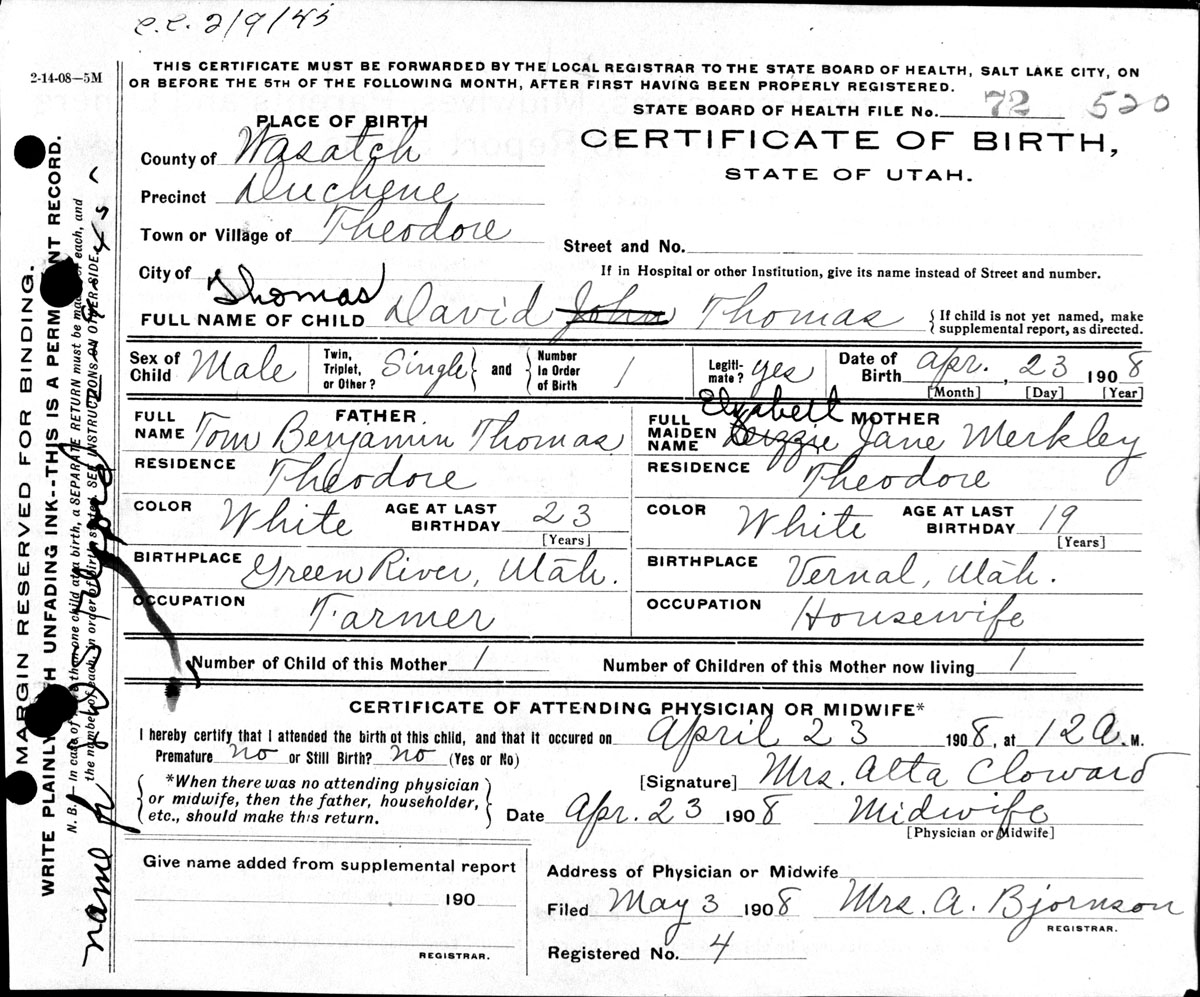 c.c. 2/9/43
2-14-08—5M
THIS CERTIFICATE MUST BE FORWARDED BY THE LOCAL REGISTRAR TO THE STATE BOARD OF HEALTH, SALT LAKE CITY, ON
OR BEFORE THE 5TH OF THE FOLLOWING MONTH, AFTER FIRST HAVING BEEN PROPERLY REGISTERED.
STATE BOARD OF HEALTH FILE No. 72 520
PLACE OF BIRTH
CERTIFICATE OF BIRTH,
STATE OF UTAH.
County of Wasatch
Precinct Duchene
Town or Village of Theodore
Street and No.
City of
If in Hospital or other Institution, give its name instead of Street and number.
Thomas
FULL NAME OF CHILD David John Thomas
{ If child is not yet named, make
{ supplemental report, as directed.
Sex of Child Male
Twin, Triplet, or Other? Single } and { Number In Order of Birth 1
Legiti-mate? yes
Date of Birth Apr. , 23 1908
[Month] [Day] [Year]
FATHER
FULL NAME Tom Benjamin Thomas
RESIDENCE Theodore
COLOR White AGE AT LAST BIRTHDAY 23
[Years]
BIRTHPLACE Green River, Utah.
OCCUPATION Farmer
MOTHER
Elizabett
FULL MAIDEN NAME Lizzie Jane Merkley
RESIDENCE Theodore
COLOR White AGE AT LAST BIRTHDAY 19
[Years]
BIRTHPLACE Vernal, Utah.
OCCUPATION Housewife
Number of Child of this Mother 1 Number of Children of this Mother now living 1
CERTIFICATE OF ATTENDING PHYSICIAN OR MIDWIFE*
I hereby certify that I attended the birth of this child, and that it occured on April 23 1908, at 12 A. M.
Premature no or Still Birth? no (Yes or No)
[Signature] Mrs. Alta Cloward
{ *When there was no attending physician
or midwife, then the father, householder,
etc., should make this return. }
Date Apr. 23 1908 Midwife
[Physician or Midwife]
Give name added from supplemental report
190
REGISTRAR.
Address of Physician or Midwife
Filed May 3 1908 Mrs. A. Bjornson
REGISTRAR.
Registered No. 4
MARGIN RESERVED FOR BINDING.
WRITE PLAINLY UNFADING INK--THIS IS A PERMANENT RECORD.
N. B.— In case of more than one child at a birth, a SEPARATE RETURN must be made for each, and
the number of each, in order of birth stated. SEE INSTRUCTIONS ON OTHER SIDE.
name